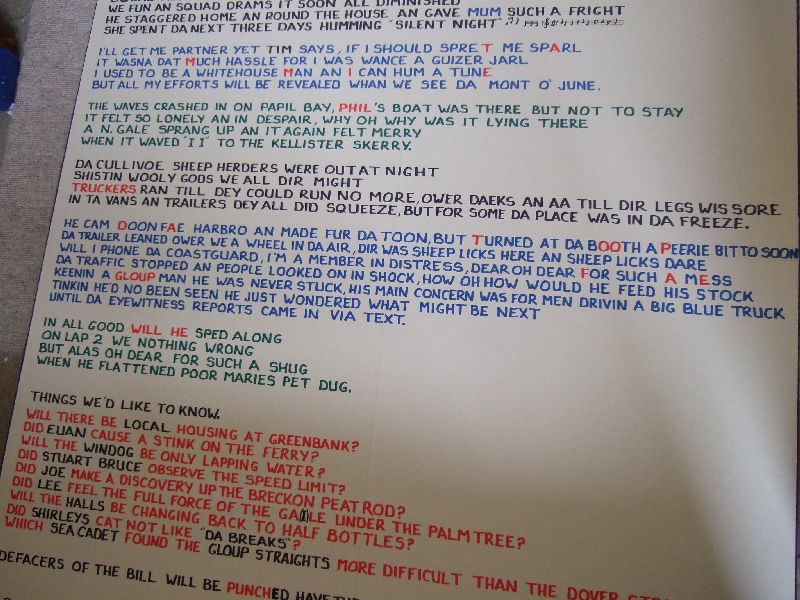 WE FUN AN SQUAD DRAMS IT SOON ALL DIMINISHED
HE STAGGERED HOME AN ROUND THE HOUSE AN GAVE MUM SUCH A FRIGHT
SHE SPENT DA NEXT THREE DAYS HUMMING "SILENT NIGHT"
I'LL GET ME PARTNER YET TIM SAYS, IF I SHOULD SPRET ME SPARL
IT WASNA DAT MUCH HASSLE FOR I WAS WANCE A GUIZER JARL
I USED TO BE A WHITEHOUSE MAN AN I CAN HUM A TUNE
BUT ALL MY EFFORTS WILL BE REVEALED WHAN WE SEE DA MONT O' JUNE.
THE WAVES CRASHED IN ON PAPIL BAY, PHIL'S BOAT WAS THERE BUT NOT TO STAY
IT FELT SO LONELY AN IN DESPAIR, WHY OH WHY WAS IT LYING THERE
A N. GALE SPRANG UP AN IT AGAIN FELT MERRY
WHEN IT WAVED "II" TO THE KELLISTER SKERRY.
DA CULLIVOE SHEEP HERDERS WERE OUT AT NIGHT
SHISTIN WOOLY GODS WE ALL DIR MIGHT
TRUCKERS RAN TILL DEY COULD RUN NO MORE, OWER DAEKS AN AA TILL DIR LEGS WIS SORE
IN TA VANS AN TRAILERS DEY ALL DID SQUEEZE, BUT FOR SOME DA PLACE WAS IN DA FREEZE.
HE CAM DOON FAE HARBRO AN MADE FUR DA TOON, BUT TURNED AT DA BOOTH A PEERIE BIT TO SOON
DA TRAILER LEANED OWER WE A WHEEL IN DA AIR, DIR WAS SHEEP LICKS HERE AN SHEEP LICKS DARE
WILL I PHONE DA COASTGUARD, I'M A MEMBER IN DISTRESS, DEAR OH DEAR FOR SUCH A MESS
DA TRAFFIC STOPPED AN PEOPLE LOOKED ON IN SHOCK, HOW OH HOW WOULD HE FEED HIS STOCK
KEENIN A GLOUP MAN HE WAS NEVER STUCK, HIS MAIN CONCERN WAS FOR MEN DRIVIN A BIG BLUE TRUCK
TINKIN HE'D NO BEEN SEEN HE JUST WONDERED WHAT MIGHT BE NEXT
UNTIL DA EYEWITNESS REPORTS CAME IN VIA TEXT.
IN ALL GOOD WILL HE SPED ALONG
ON LAP 2 WE NOTHING WRONG
BUT ALAS OH DEAR FOR SUCH A SHUG
WHEN HE FLATTENED POOR MARIES PET DUG.
THINGS WE'D LIKE TO KNOW.
WILL THERE BE LOCAL HOUSING AT GREENBANK?
DID EUAN CAUSE A STINK ON THE FERRY?
WILL THE WINDOG BE ONLY LAPPING WATER?
DID STUART BRUCE OBSERVE THE SPEED LIMIT?
DID JOE MAKE A DISCOVERY UP THE BRECKON PEAT ROD?
DID LEE FEEL THE FULL FORCE OF THE GALE UNDER THE PALM TREE?
WILL THE HALLS BE CHANGING BACK TO HALF BOTTLES?
DID SHIRLEYS CAT NOT LIKE "DA BREAKS"?
WHICH SEA CADET FOUND THE GLOUP STRAIGHTS MORE DIFFICULT THAN THE DOVER
DEFACERS OF THE BILL WILL BE PUNCHED HAVE